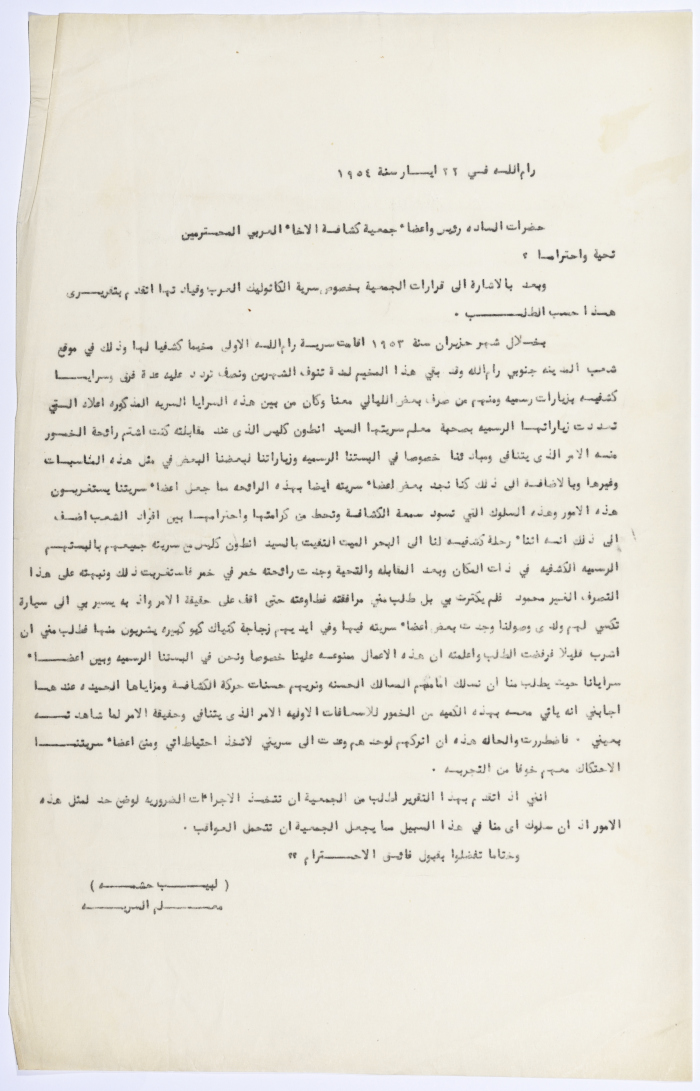 رام الله في ٢٢ ايار سنة ١٩٥٤
حضرات الساده رئيس واعضاء جمعية كشافة الاخاء العربي المحترمين
تحية واحتراما ؟
وبعد بالاشارة الى قرارات الجمعية بخصوص سرية الكاثوليك العرب وقيادتها اتقدم بتقريرى
هذا حسب الطلب ٠
بخلال شهر حزيران سنة ١٩٥٣ اقامت سرية رام الله الاولى مخيما كشفيا لها وذلك في موقع
شعب المدينه جنوبي رام الله وقد بقي هذا المخيم لمدة تنوف الشهرين ونصف تردد عليه عدة فرق وسرايا
كشفيه بزيارات رسميه ومنهم من صرف بعض الليالي معنا وكان من بين هذه السرايا السريه المذكوره اعلاه التي
تعددت زياراتها الرسميه بصحبة معلم سريتها السيد انطون كليس الذى عند مقابلته كنت اشتم رائحة الخمور
منه الامر الذى يتنافى ومبادئنا خصوصا في البستنا الرسميه وزياراتنا لبعضنا البعض في مثل هذه المناسبات
وغيرها وبالاضافة الى ذلك كنا نجد بعض اعضاء سريته ايضا بهذه الرائحه مما جعل اعضاء سريتنا يستغربون
هذه الامور وهذه السلوك التي تسود سمعة الكشافة وتحط من كرامتها واحترامها بين افراد الشعب اضف
الى ذلك انه اثناء رحلة كشفيه لنا الى البحر الميت التقيت بالسيد انطون كليس مع سريته جميعهم بالبستهم
الرسميه الكشفيه في ذات المكان وبعد المقابله والتحية وجدت رائحته خمر في خمر فاستغربت ذلك ونبهته على هذا
التصرف الغير محمود فلم يكترث بي بل طلب مني مرافقته فطاوعته حتى اقف على حقيقة الامر واذ به يسير بي الى سيارة
تكسي لهم ولدى وصولنا وجدت بعض اعضاء سريته فيها وفي ايديهم زجاجة كنياك كبيره يشربون منها فطلب مني ان
اشرب قليلا فرفضت الطلب واعلمته ان هذه الاعمال ممنوعه علينا خصوصا ونحن في البستنا الرسميه وبين اعضاء
سرايانا حيث يطلب منا ان نسلك امامهم المسالك الحسنه ونريهم حسنات حركة الكشافة ومزاياها الحميده عندها
اجابني انه ياتي معه بهذه الكميه من الخمور للاسعافات الاوليه الامر الذى يتنافى وحقيقة الامر لما شاهدته
بعيني ٠ فاضطررت والحاله هذه ان اتركهم لوحدهم وعدت الى سريتي لاتخذ احتياطاتي ومنع اعضاء سريتنا
الاحتكاك معهم خوفا من التجربه ٠
انني اذ اتقدم بهذا التقرير اطلب من الجمعية ان تتخذ الاجراءات الضروريه لوضع حد لمثل هذه
الامور اذ ان سلوك اى منا في هذا السبيل مما يجعل الجمعية ان تتحمل العواقب ٠
وختاما تفضلوا بقبول فائق الاحترام ؟؟
( لبيب حشمه )
معلم السريه